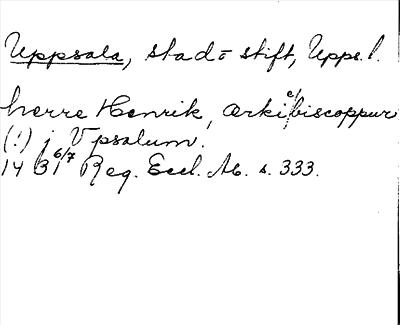 Uppsala, stad o stift, Upps. l.
herre Henrik, ærkie/biscoppur
(!) j Vpsalum.
1431 6/7 Reg. Eccl. Ab. s. 333.